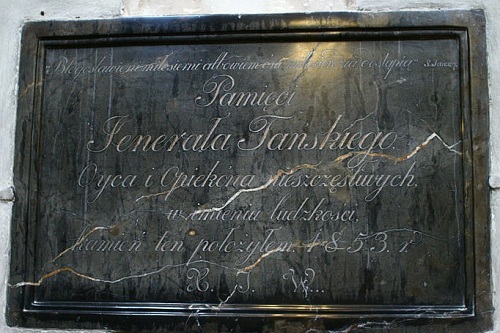 Błogosławieni miłosierni albowiem oni miłosierdzia dostąpią
Pamięci
Jenerała Tańskiego.
Oyca i Opiekóna nieszczęśliwych,
w imieniu ludzkości,
kamień ten położyłem. 1853. r.
X. J. W...